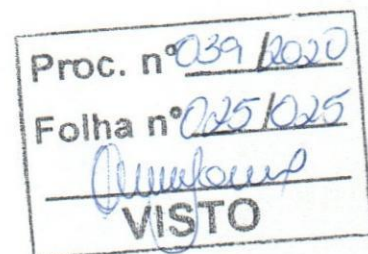 Proc. nº 039/2020
Folha nº 025/025
VISTO